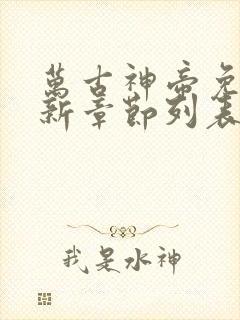 萬古神帝免
新章節列表
我是水神